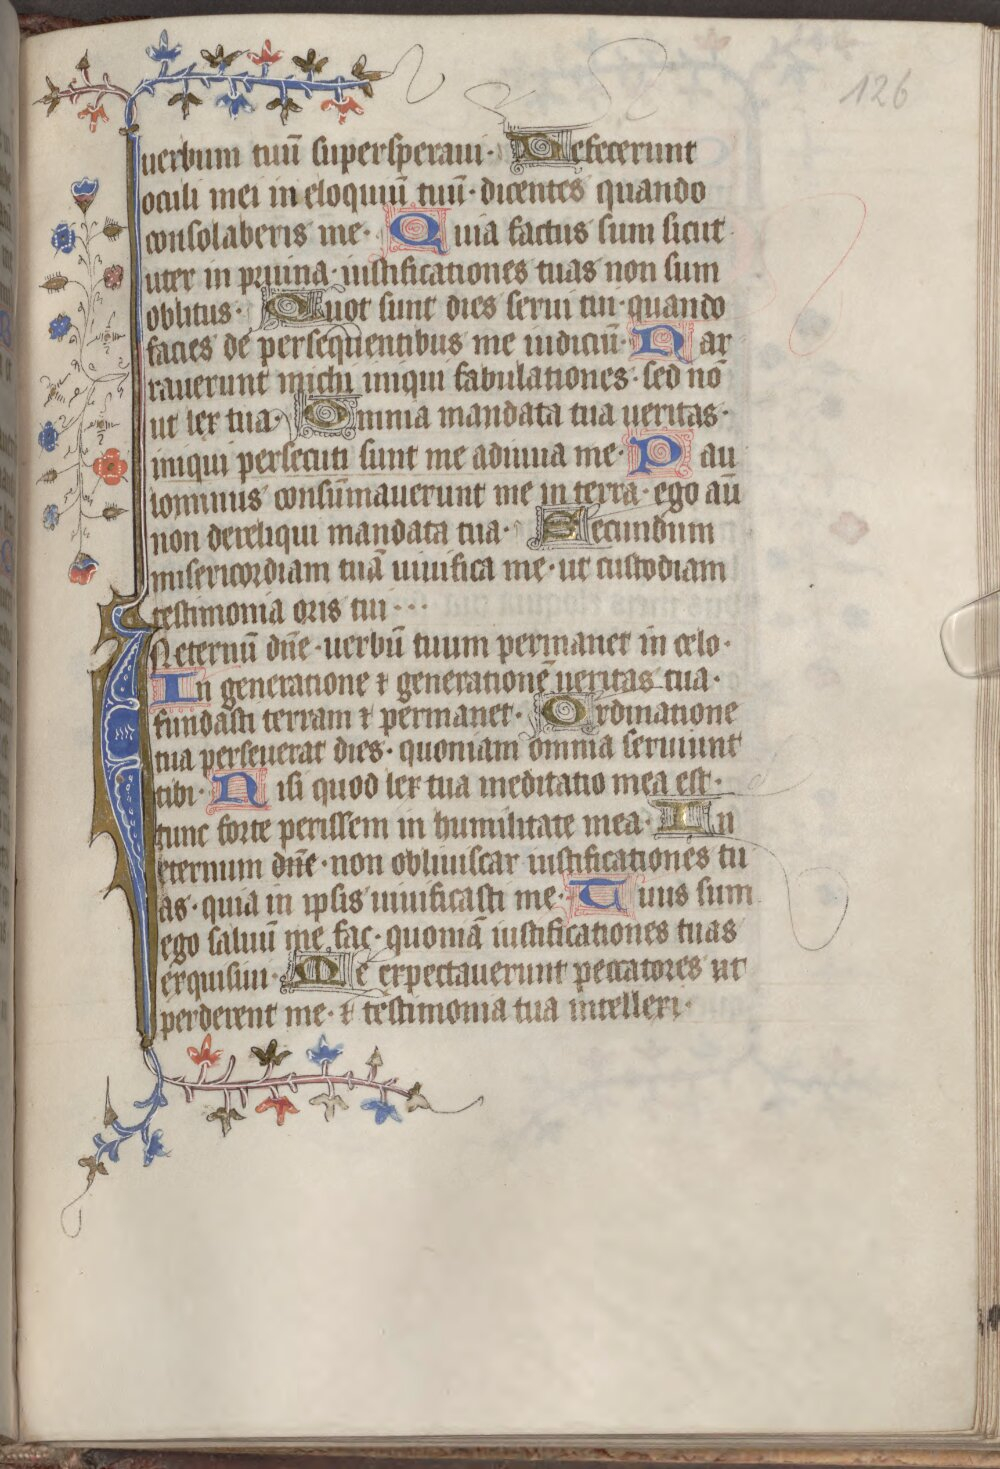 126
uerbum tuū supersperaui· Defecerunt
oculi mei in eloquiū tuū· dicentes quando
consolaberis me· Quia factus sum sicut
uter in pruina· iustificationes tuas non sum
oblitus· Quot sunt dies serui tui· quando
facies de persequentibus me iudiciū· Nar
rauerunt michi iniqui fabulationes· sed nō
ut lex tua· Omnia mandata tua ueritas·
iniqui persecuti sunt me adiuua me· Pau
lominus consūmauerunt me in terra· ego aū
non dereliqui mandata tua· Secundum
misericordiam tuā uiuifica me· ut custodiam
testimonia oris tui···
IN eternū dn̄e· uerbū tuum permanet in celo·
In generatione ⁊ generationē ueritas tua·
fundasti terram ⁊ permanet· Ordinatione
tua perseuerat dies· quoniam omnia seruiunt
tibi· Nisi quod lex tua meditatio mea est·
tunc forte perissem in humilitate mea· In
eternum dn̄e· non obliuiscar iustificationes tu
as· quia in ipsis uiuificasti me· Tuus sum
ego saluū me fac· quoniā iustificationes tuas
exquisiui· Me expectauerunt peccatores ut
perderent me· ⁊ testimonia tua intellexi·